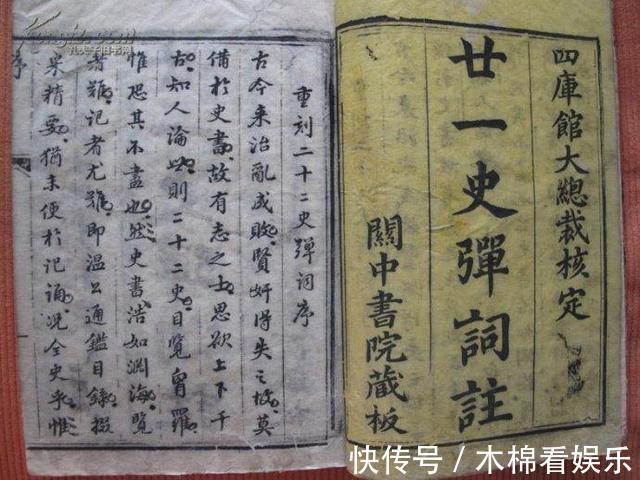 四庫館大總裁核定
廿一史彈詞註
關中書院藏板
重刻二十二史彈词序
古今来治亂成敗賢奸得失之故莫
備於史書故有志之士思欲上下千
古知人論世則二十二史目覧胷羅
惟恐其不盡也然史書浩如渊海覧
者難記者尤難即温公通鑑目録掇
采精要猶未便於记誦况全史乎惟
序
快传号 / 木棉看娱乐